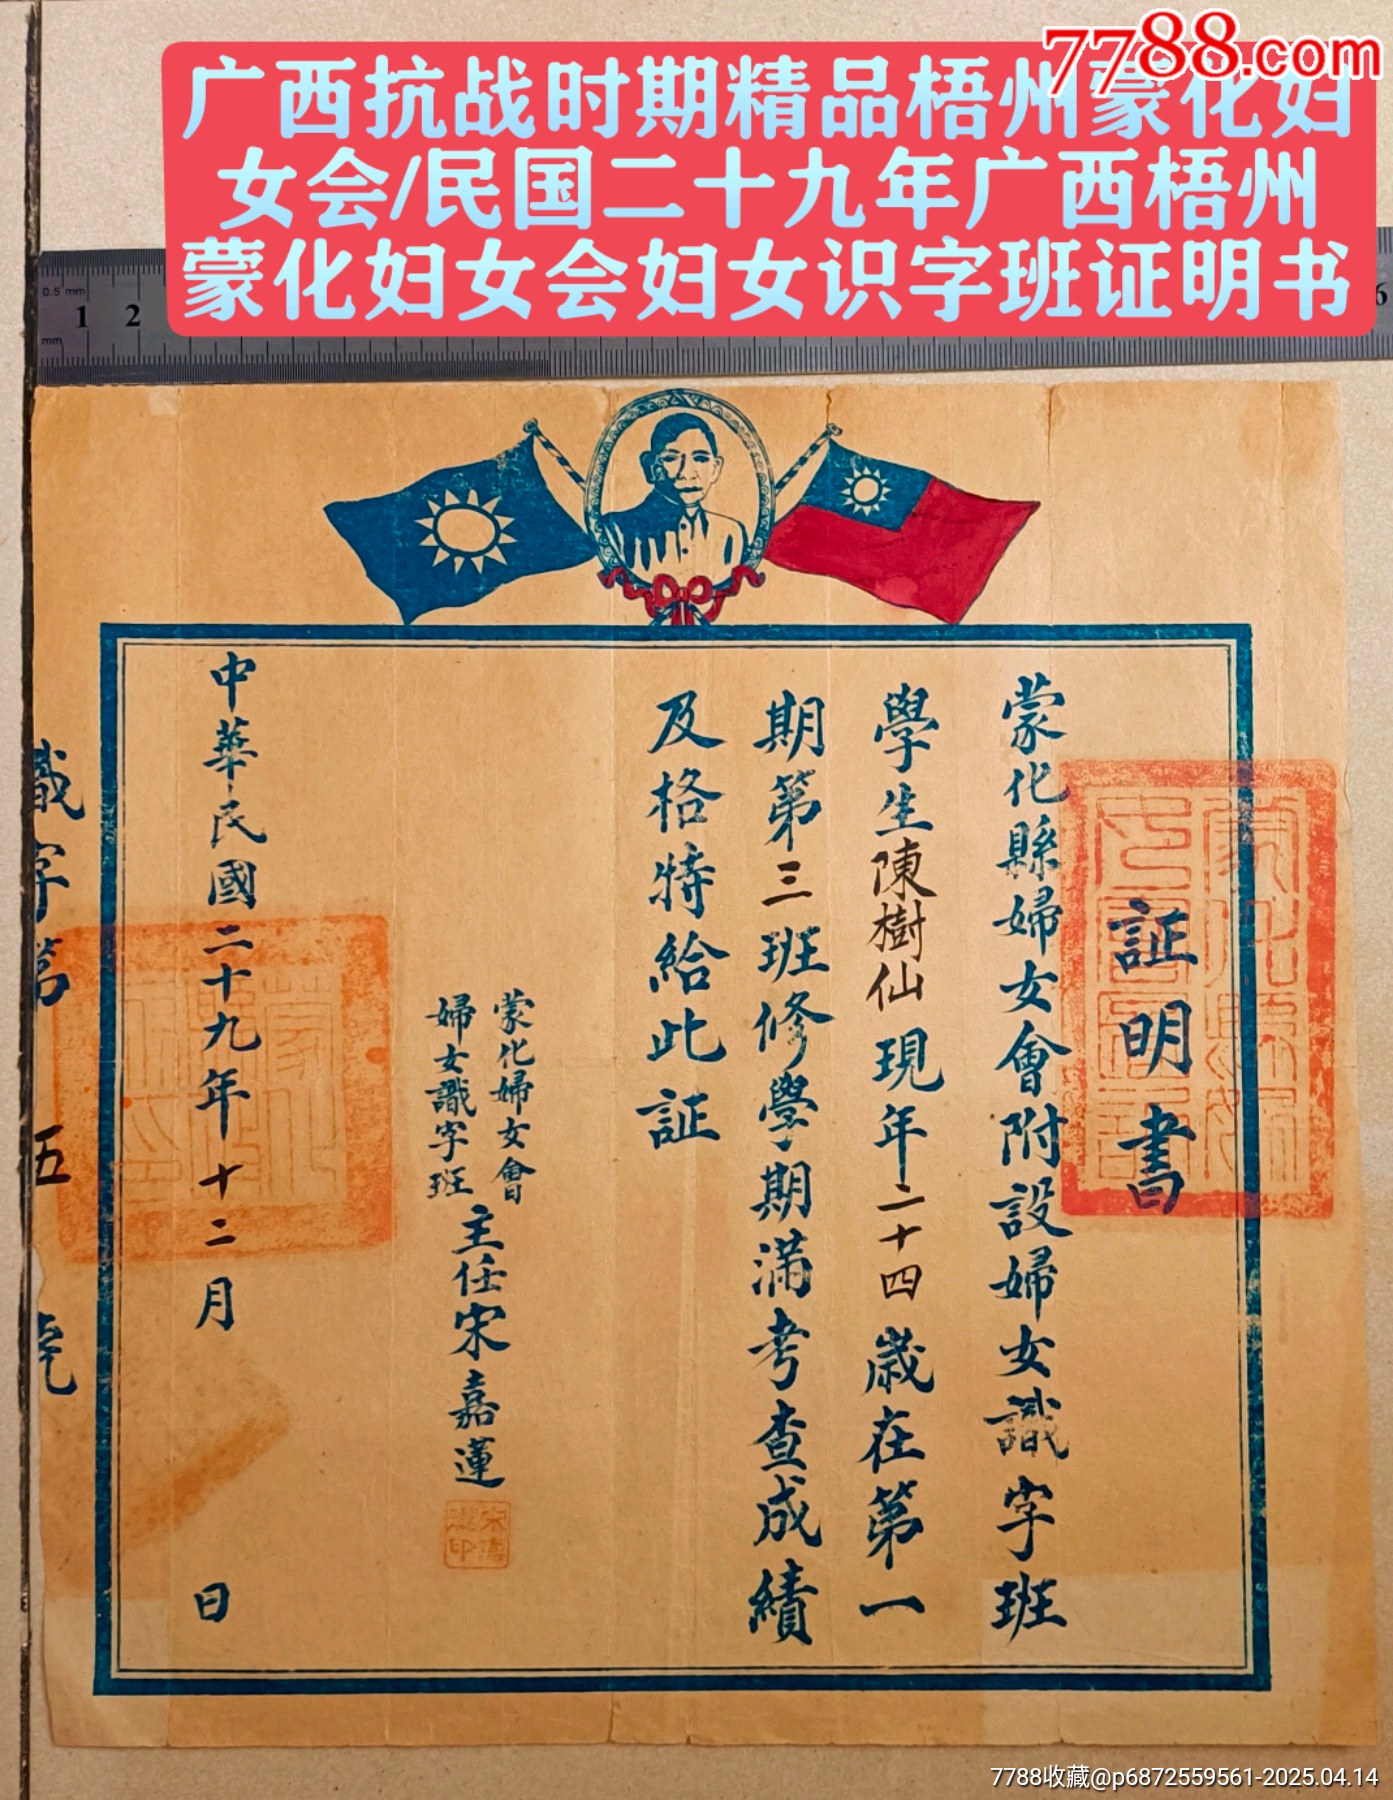 7788.com
广西抗战时期精品梧州蒙化妇
女会/民国二十九年广西梧州
蒙化妇女会妇女识字班证明书
0.5 mm
1 2
mm
6
証明書
蒙化縣婦女會附設婦女識字班
學生陳樹仙現年二十四歲在第一
期第三班修學期滿考查成績
及格特給此証
蒙化婦女會
婦女識字班
主任宋嘉蓮
中華民國二十九年十二月 日
識字第 五 號
7788收藏@p6872559561-2025.04.14